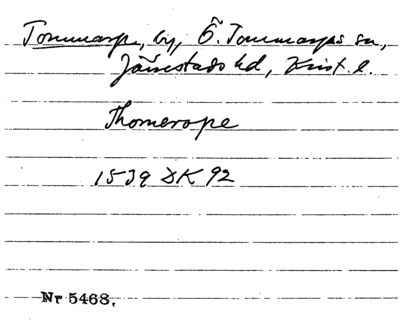 Tommarp, by, Ö. Tommarps sn,
Järrestads hd, Krist. l.
Thomerope
1539 DK 92
Nr 5468.